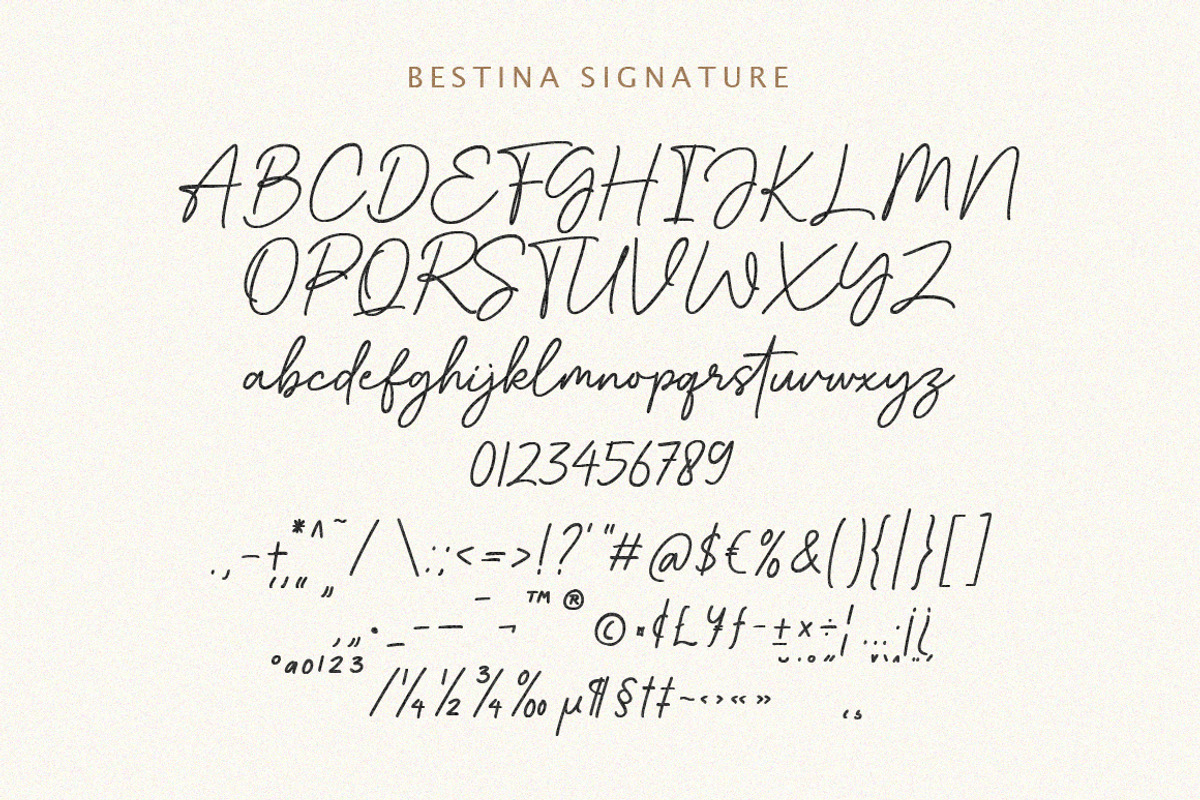 BESTINA SIGNATURE
ABCDEFGHIJKLMN
OPQRSTUVWXYZ
abcdefghijklmnopqrstuvwxyz
0123456789
.,-+*^~/\:;<=>!?'"#@$€%&(){|}[]
‚„•_–—¯¬™®©¤¢£¥ƒ-±×÷¦…·¡¿
ºª0123
/¼½¾‰µ¶§†‡~‹›«»